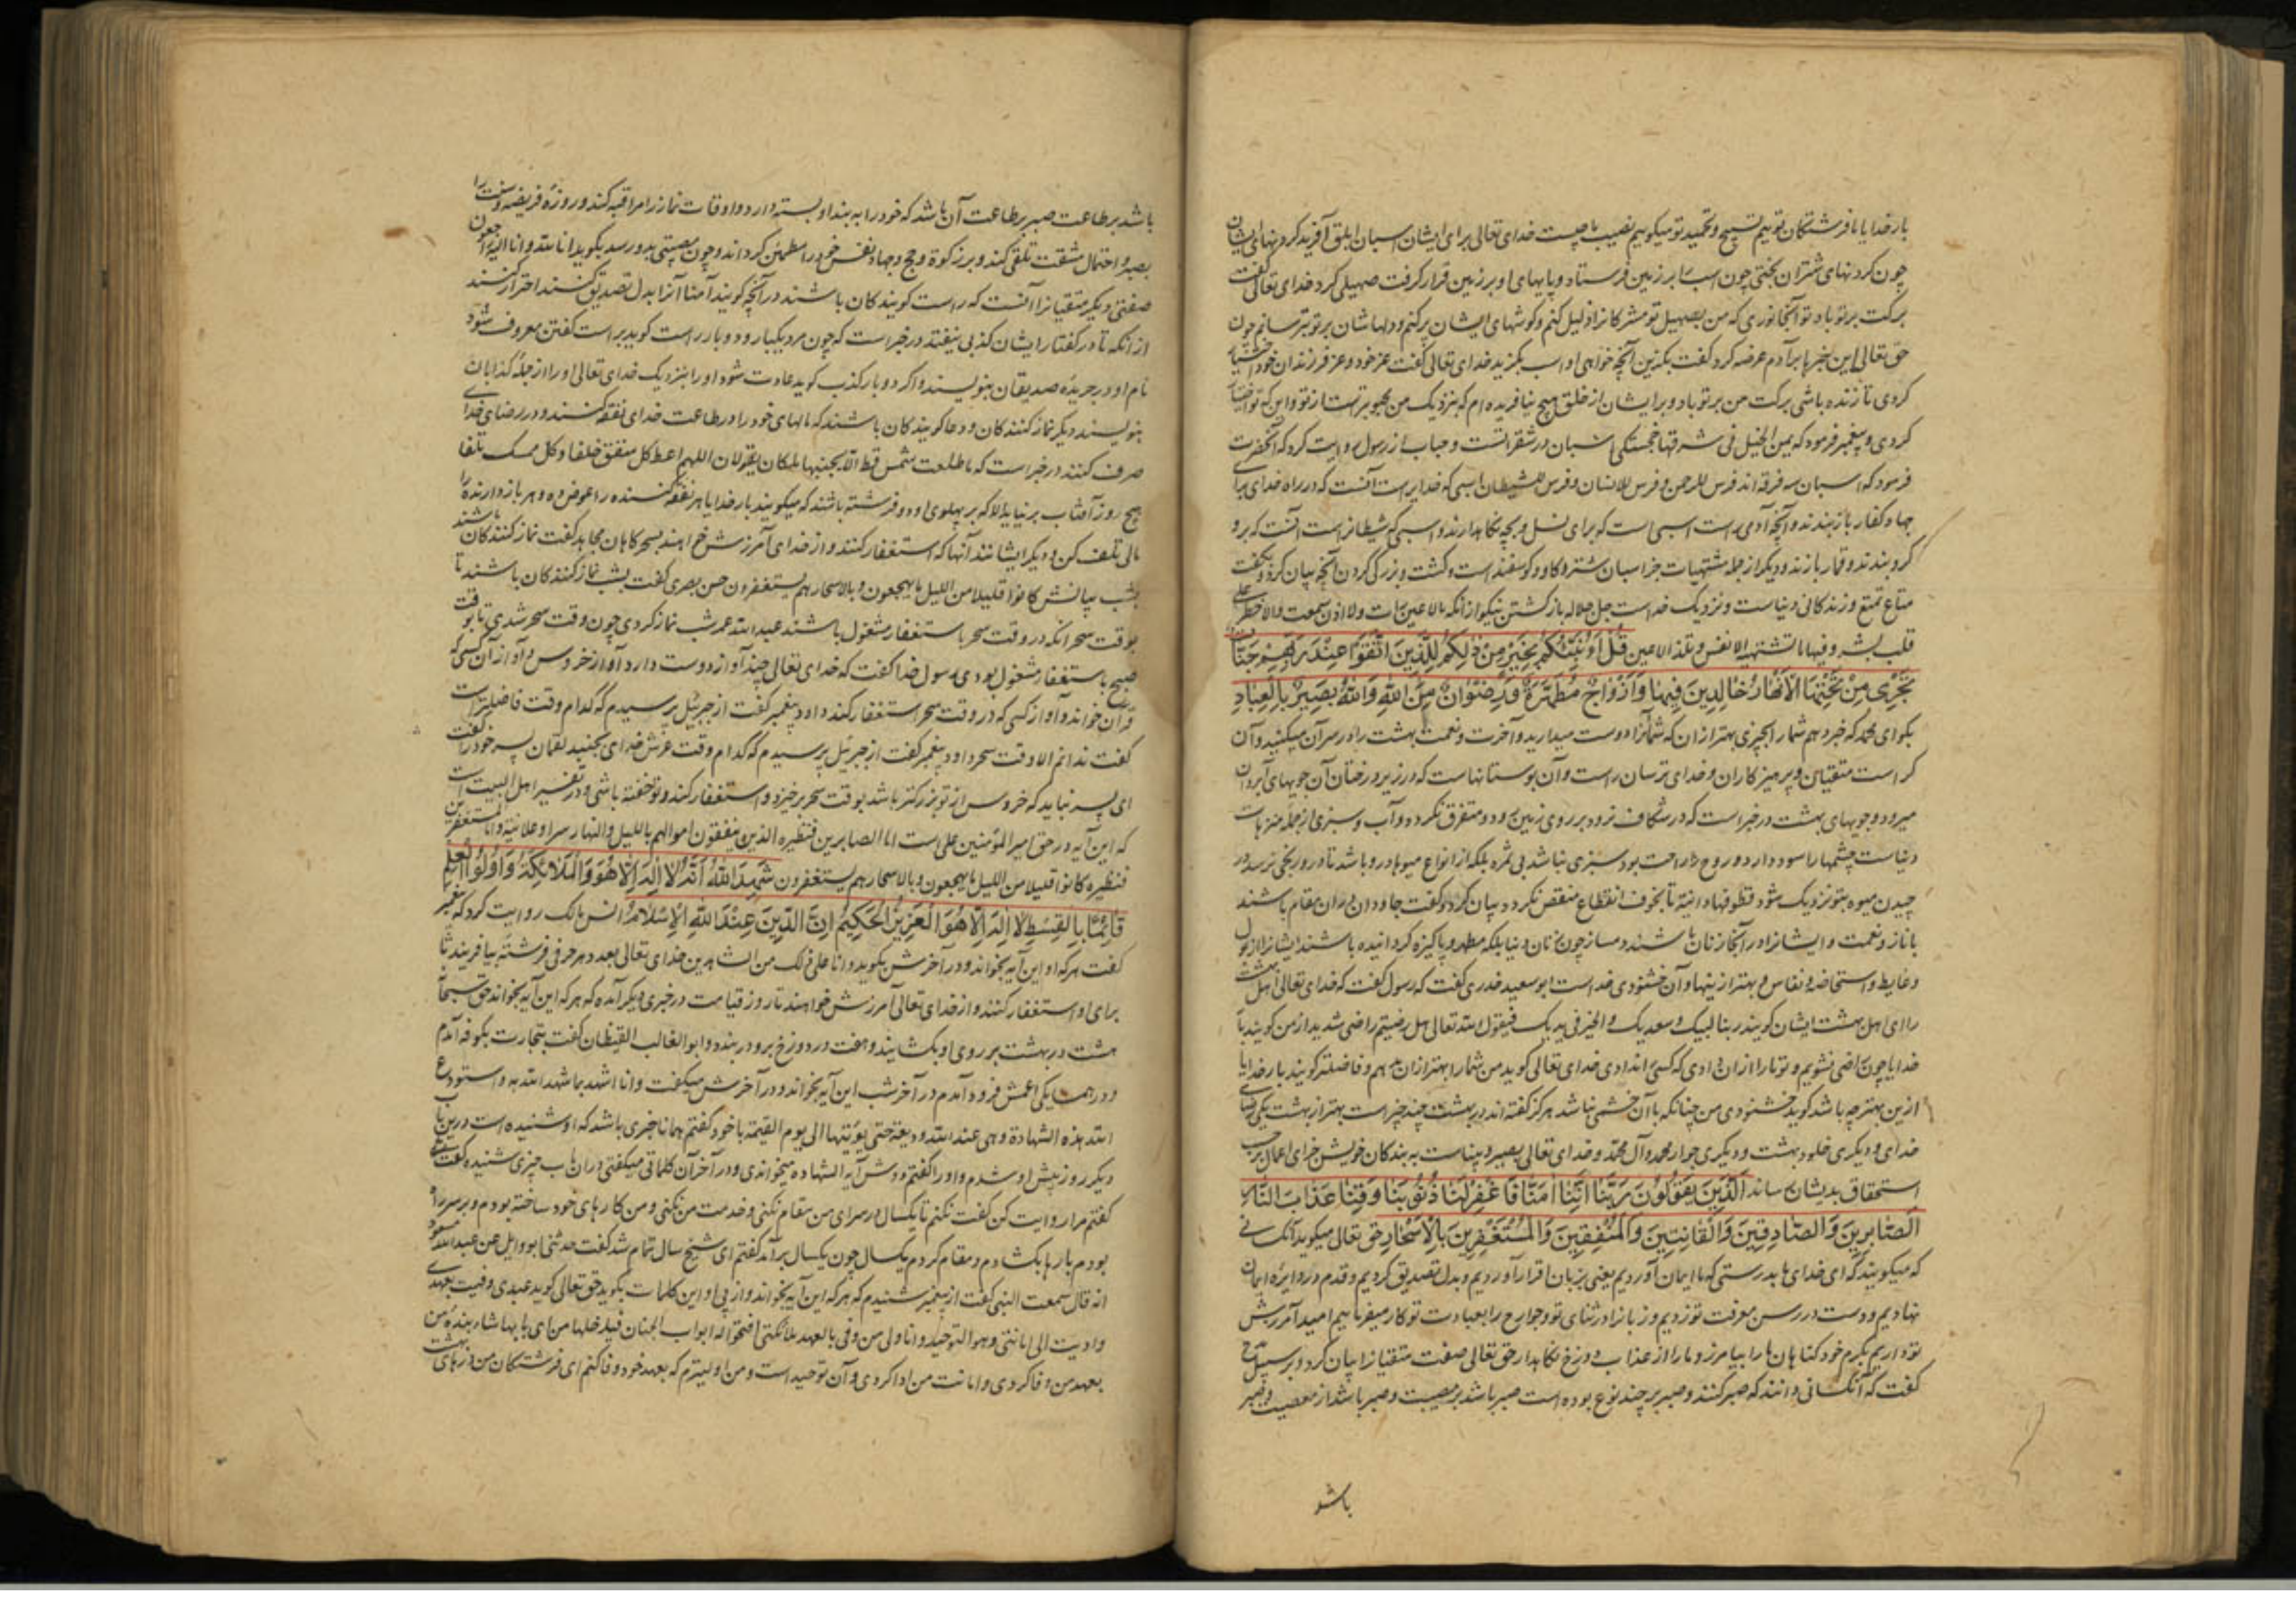 بار خدایا ما فرشتگان توییم تسبیح و تحمید تو میکوییم نصیب ما چیست خدای تعالی برای ایشان اسبان ابلق آفرید کردنهای ایشان
چون کردنهای شتران بختی چون اسب را بر زمین فرستاد و پایهای او بر زمین قرار کرفت صهیلی کرد خدای تعالی کفت
برکت بر تو باد تو آنجانوری که من بصهیل تو مشرکانرا ذلیل کنم و کوشهای ایشان پر کنم و دلهاشان بر تو بترسانم چون
حق تعالی این خبرها بر آدم عرضه کرد کفت بکزین آنچه خواهی او اسب بکزید خدای تعالی کفت عز خود و عز فرزندان خود اختیار
کردی تا زنده باشی برکت من بر تو باد و بر ایشان از خلق هیچ نیافریده ام که بنزدیک من محبوبتر است از تو و این که تو اختیار
کردی و پیغمبر فرمود که یمن الخیل فی شقرتها خجستکی اسبان در شقر انست و از رسول روایت کرد که آنحضرت
فرمود که اسبان سه فرقه اند فرس للرحمن و فرس للانسان و فرس للشیطان اسبی که خدایراست آنست که در راه خدای برای
جهاد کفار باز بندند و آنچه آدمی راست اسبی است که برای نسل و بچه نکاهدارند و اسبی که شیطانراست آنست که برو
کرو بندند و قمار بازند و دیکر از جمله مشتهیات جز اسبان شتر و کاو و کوسفند است و کشت و زرکی کردن آنچه بیان کرد و کفت
متاع تمتع و زندکانی دنیاست و نزدیک خداست جل جلاله بازکشتن نیکو از آنکه مالا عین رات ولا اذن سمعت ولا خطر علی
قلب بشر و فیها ما تشتهیه الانفس و تلذ الاعین قُلْ أَؤُنَبِّئُكُمْ بِخَيْرٍ مِنْ ذٰلِكُمْ لِلَّذِينَ اتَّقَوْا عِنْدَ رَبِّهِمْ جَنَّاتٌ
تَجْرِي مِنْ تَحْتِهَا الْأَنْهَارُ خَالِدِينَ فِيهَا وَأَزْوَاجٌ مُطَهَّرَةٌ وَرِضْوَانٌ مِنَ اللهِ وَاللهُ بَصِيرٌ بِالْعِبَادِ
بکو ای محمد که خبر دهم شما را بچیزی بهتر از ان که شما آنرا دوست میدارید و آخرت و نعمت بهشت را در سر آن میکنید و آن
کراست متقیان و پرهیزکاران و خدای ترسان راست و آن بوستانهاست که در زیر درختان آن جویهای آب روان
میرود و جویهای بهشت در خبر است که در شکاف نرود بر روی زمین رود و متفرق نکردد و آب و سبزی از جمله
دنیاست چشمها را سود دارد و روح را راحت بود سبزی نباشد بی ثمره بلکه از انواع میوها درو باشد تا رنجی نرسد در
چیدن میوه بتو نزدیک شود قطوفها دانیة تا بخوف انقطاع منغص نکردد بیان کرد و کفت جاودان دران مقام باشند
با ناز و نعمت و ایشانرا در آنجا زنان باشند و مساز چون زنان دنیا بلکه مطهر و پاکیزه کردانیده باشند ایشانرا از بول
و غایط و استحاضه و نفاس و بهتر از اینها و آن خشنودی خداست ابو سعید خدری کفت که رسول کفت که خدای تعالی اهل بهشت
را ای اهل بهشت ایشان کویند ربنا لبیک و سعدیک و الخیر فی یدیک فیقول الله تعالی هل رضیتم راضی شدید از من کویند بار
خدایا چون راضی نشویم و تو ما را از ان دادی که کسی را ندادی خدای تعالی کوید من شما را بهتر از ان دهم و فاضلتر کویند بار خدایا
ازین بهتر چه باشد کوید خشنودی من چنانکه با آن خشمی نباشد هرکز کفته اند در بهشت چند چیز است بهتر از بهشت یکی رضای
خدای و دیکری خلود بهشت و دیکری جوار محمد و آل محمد و خدای تعالی بصیر و بیناست به بندکان خویش جزای اعمال بر حسب
استحقاق بدیشان رساند اَلَّذِينَ يَقُولُونَ رَبَّنَا إِنَّنَا آمَنَّا فَاغْفِرْ لَنَا ذُنُوبَنَا وَقِنَا عَذَابَ النَّارِ
اَلصَّابِرِينَ وَالصَّادِقِينَ وَالْقَانِتِينَ وَالْمُنْفِقِينَ وَالْمُسْتَغْفِرِينَ بِالْأَسْحَارِ حق تعالی میکوید آنکسانی
که میکویند که ای خدای ما بدرستی که ما ایمان آوردیم یعنی بزبان اقرار آوردیم و بدل تصدیق کردیم و قدم در دایره ایمان
نهادیم و دست در رسن معرفت تو زدیم و زبانرا در ثنای تو و جوارح را بعبادت تو کار میفرماییم امید آمرزش
تو داریم بکرم خود کناهان ما را بیامرز و ما را از عذاب دوزخ نکاهدار حق تعالی صفت متقیانرا بیان کرد و بر سبیل مدح
کفت که آنکسانی دانند که صبر کنند و صبر بر چند نوع بوده است صبر باشد بر مصیبت و صبر باشد از معصیت و صبر
باشد
باشد بر طاعت صبر بر طاعت آن باشد که خود را به بند او بسته دارد و اوقات نماز را مراقبه کند و روزه فریضه و سنت را
بصبر و احتمال مشقت تلقی کند و بر زکوة و حج و جهاد نفس خود را مطمئن کرداند و چون مصیبتی بدو رسد بکوید انا لله و انا الیه راجعون
صفتی دیکر متقیانرا آنست که راست کویندکان باشند در آنچه کویند آمنا آنرا بدل تصدیق کنند احتراز کنند
از آنکه تا در کفتار ایشان کذبی نیفتد در خبر است که چون مرد یکبار و دو بار راست کوید براست کفتن معروف شود
نام او در جریده صدیقان بنویسند و اکر دو بار کذب کوید عادت شود او را بنزدیک خدای تعالی او را از جمله کذابان
بنویسند دیکر نماز کنندکان و دعا کویندکان باشند که مالهای خود را در طاعت خدای نفقه کنند و در رضای خدای
صرف کنند در خبر است که ما طلعت شمس قط الا بجنبیها ملکان یقولان اللهم اعط کل منفق خلفا و کل ممسک تلفا
هیچ روز آفتاب بر نیاید الا که بر پهلوی او دو فرشته باشند که میکویند بار خدایا هر نفقه کننده را عوض ده و هر باز دارنده را
مالی تلف کن و دیکر ایشانند آنها که استغفار کنند و از خدای آمرزش خواهند بسحرکاهان مجاهد کفت نماز کنندکان باشند
بشب بیانش کانوا قلیلا من اللیل ما یهجعون و بالاسحار هم یستغفرون حسن بصری کفت بشب نماز کنندکان باشند تا
بوقت سحر آنکه در وقت سحر باستغفار مشغول باشند عبد الله عمر شب نماز کردی چون وقت سحر شدی تا بوقت
صبح باستغفار مشغول بودی رسول خدا کفت که خدای تعالی چند آواز دوست دارد آواز خروس و آواز آن کسی که
قرآن خواند و آواز کسی که در وقت سحر استغفار کند داود پیغمبر کفت از جبرئیل پرسیدم که کدام وقت فاضلتر است
کفت ندانم الا وقت سحر داود پیغمبر کفت از جبرئیل پرسیدم که کدام وقت عرش خدای بجنبد لقمان پسر خود را کفت
ای پسر نباید که خروس از تو بزرکتر باشد بوقت سحر برخیزد و استغفار کند و تو خفته باشی و در تفسیر اهل البیت است
که این آیه در حق امیر المؤمنین علی است اما الصابرین فنظیره الذین ینفقون اموالهم باللیل والنهار سرا و علانیة و اما المستغفرین
فنظیره کانوا قلیلا من اللیل ما یهجعون و بالاسحار هم یستغفرون شَهِدَ اللهُ أَنَّهُ لَا إِلٰهَ إِلَّا هُوَ وَالْمَلَائِكَةُ وَأُولُوا الْعِلْمِ
قَائِمًا بِالْقِسْطِ لَا إِلٰهَ إِلَّا هُوَ الْعَزِيزُ الْحَكِيمُ إِنَّ الدِّينَ عِنْدَ اللهِ الْإِسْلَامُ انس مالک روایت کرد که پیغمبر
کفت هر که او این آیه بخواند و در آخرش بکوید و انا علی ذلک من الشاهدین خدای تعالی بعدد هر حرفی فرشته بیافریند تا
برای او استغفار کنند و از خدای تعالی آمرزش خواهند تا روز قیامت در خبری دیکر آمده که هر که این آیه بخواند حق سبحانه
هشت در بهشت بر روی او بکشایند و هفت در دوزخ برو دربندد و ابو الغالب القیظان کفت بتجارت بکوفه آمدم
و در همسایکی اعمش فرود آمدم در آخر شب این آیه بخواند و در آخرش میکفت و انا اشهد بما شهد الله به و استودع
الله هذه الشهادة و هی عند الله ودیعة حتی یؤتنیها الی یوم القیمة با خود کفتم همانا خبری باشد که او شنیده است درین باب
دیکر روز پیش او شدم و او را کفتم دوش آیه الشهاده میخواندی و در آخر آن کلماتی میکفتی دران باب چیزی شنیده کفت بلی
کفتم مرا روایت کن کفت نکنم تا یکسال در سرای من مقام نکنی و خدمت من نکنی و من کارهای خود ساخته بودم و بر سر راه
بودم بارها بکشادم و مقام کردم یکسال چون یکسال برآمد کفتم ای شیخ سال تمام شد کفت حدثنی ابو وایل عن عبد الله مسعود
انه قال سمعت النبی کفت از پیغمبر شنیدم که هر که این آیه بخواند و از پی او این کلمات بکوید حق تعالی کوید عبدی وفیت بعهدی
و ادیت الی امانتی و هو التوحید و انا اولی من وفی بالعهد ملائکتی افتحوا له ابواب الجنان فیدخلها من ای بابها شاء بنده من
بعهد من وفا کردی و امانت من ادا کردی و آن توحید است و من اولیترم که بعهد خود وفا کنم ای فرشتکان من درهای بهشت